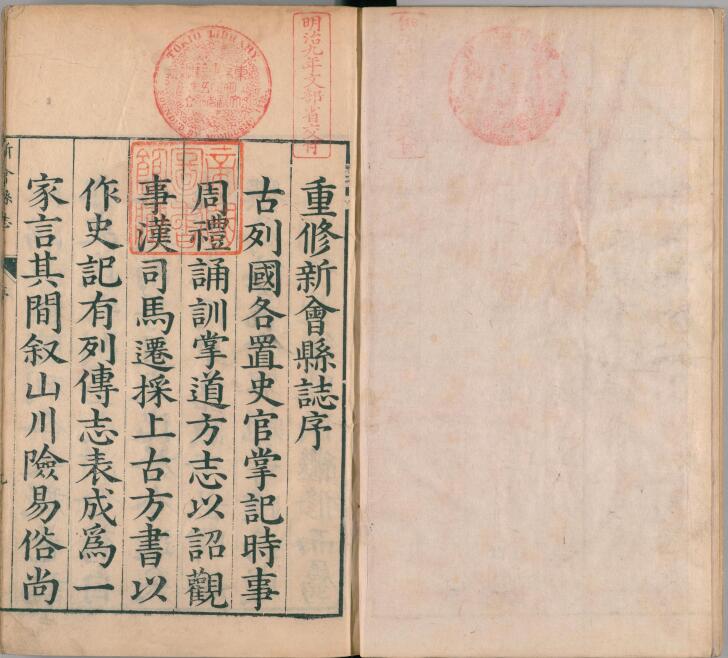 重修新會縣誌序
古列國各置史官掌記時事
周禮誦訓掌道方志以詔觀
事漢司馬遷採上古方書以
作史記有列傳志表成爲一
家言其間叙山川險易俗尚
新會縣志
明治九年文部省交付
TOKIO LIBRARY